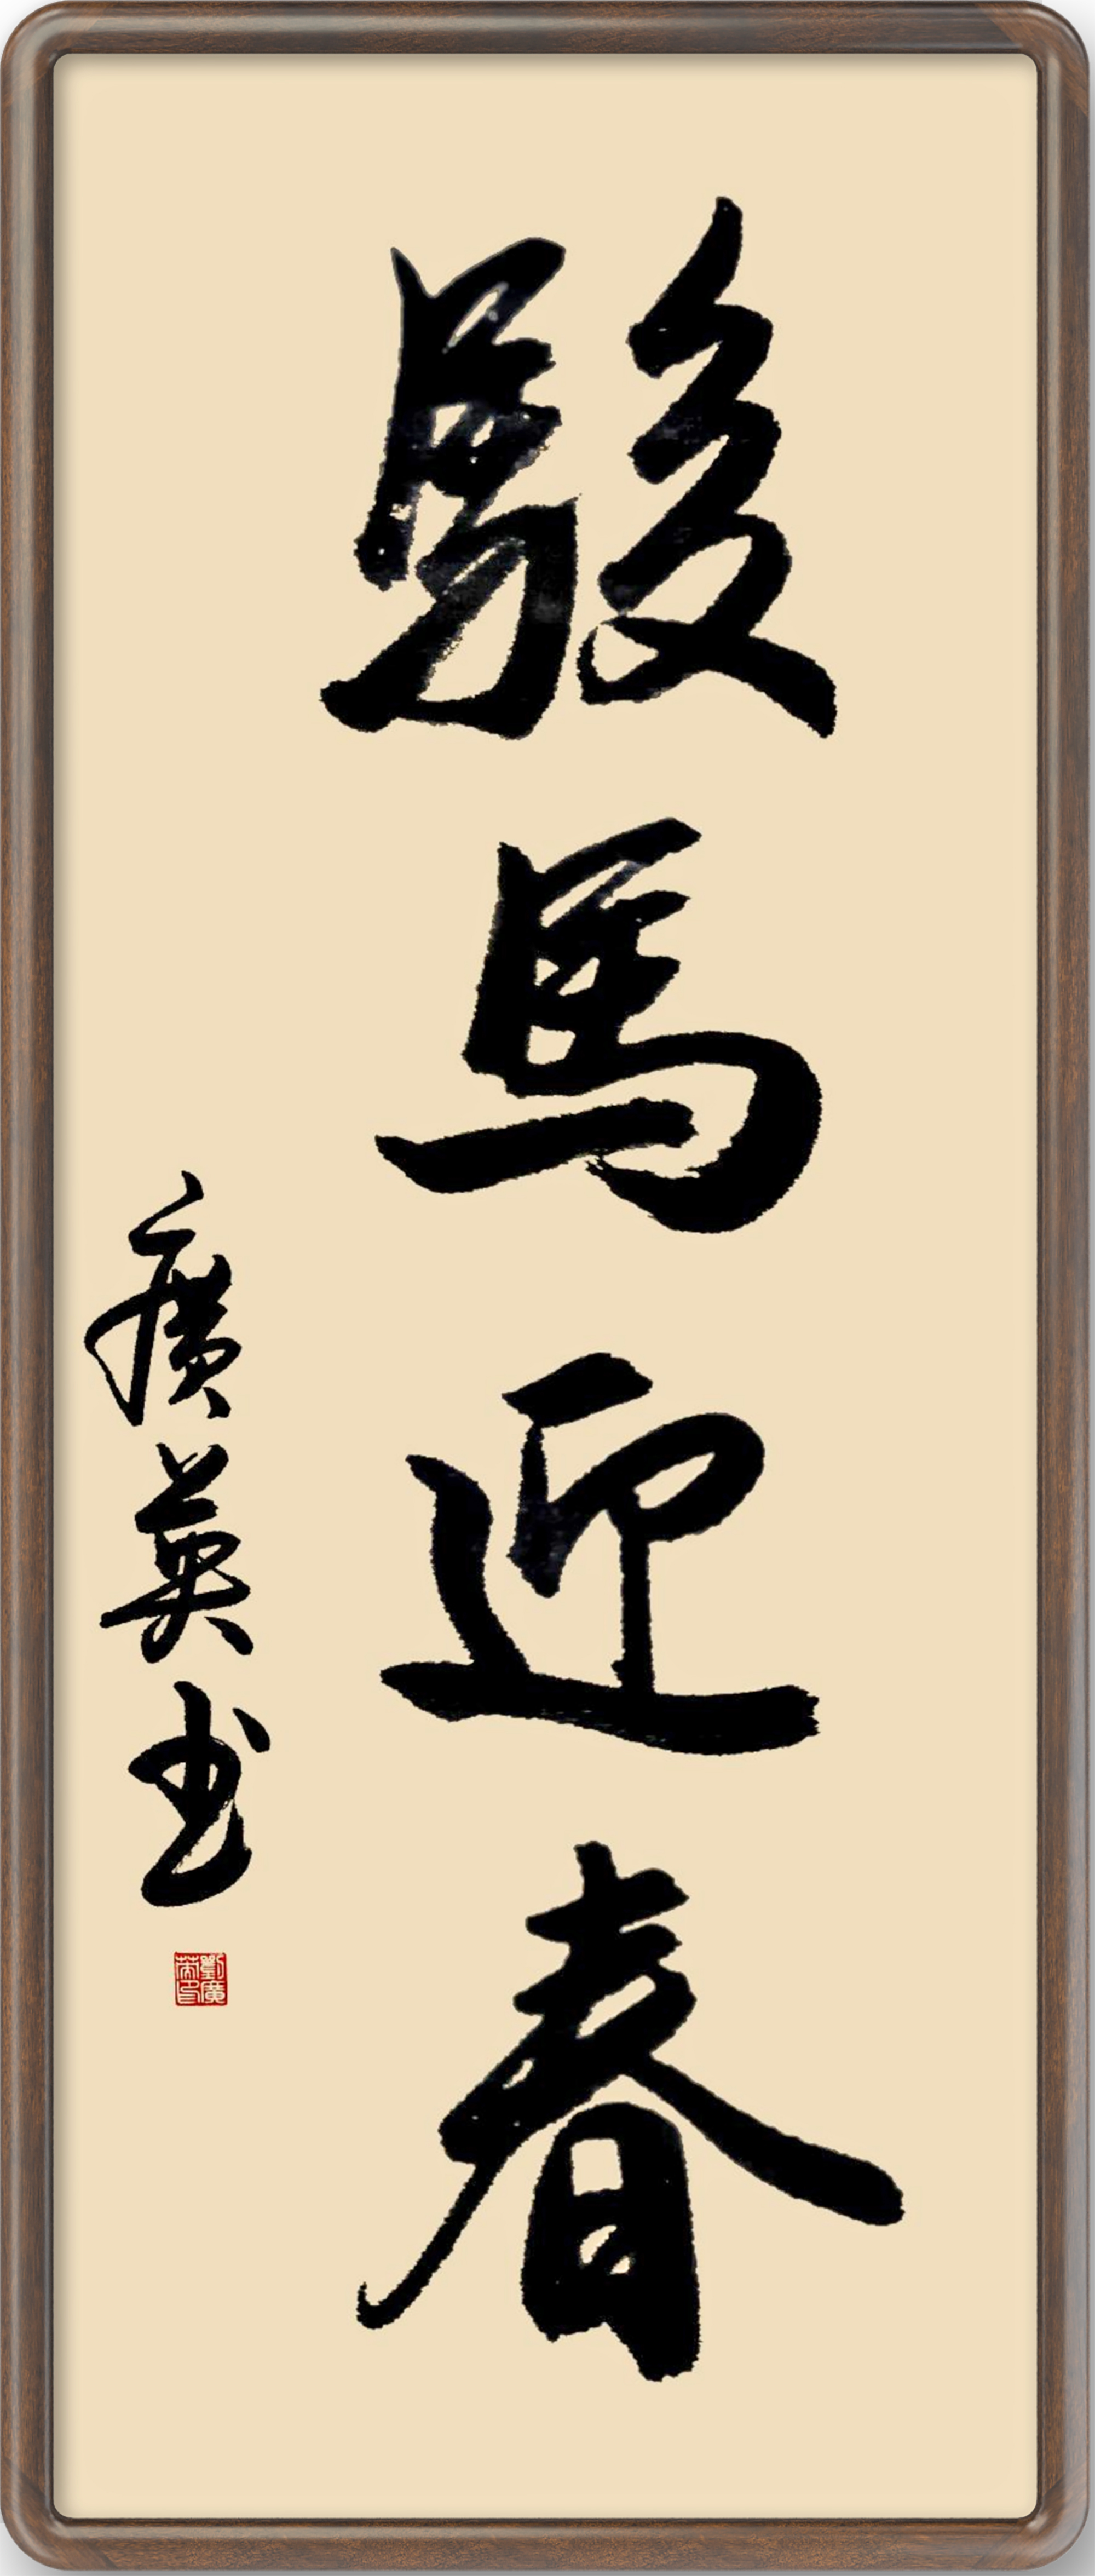 駿馬迎春
廣英书
劉廣英印